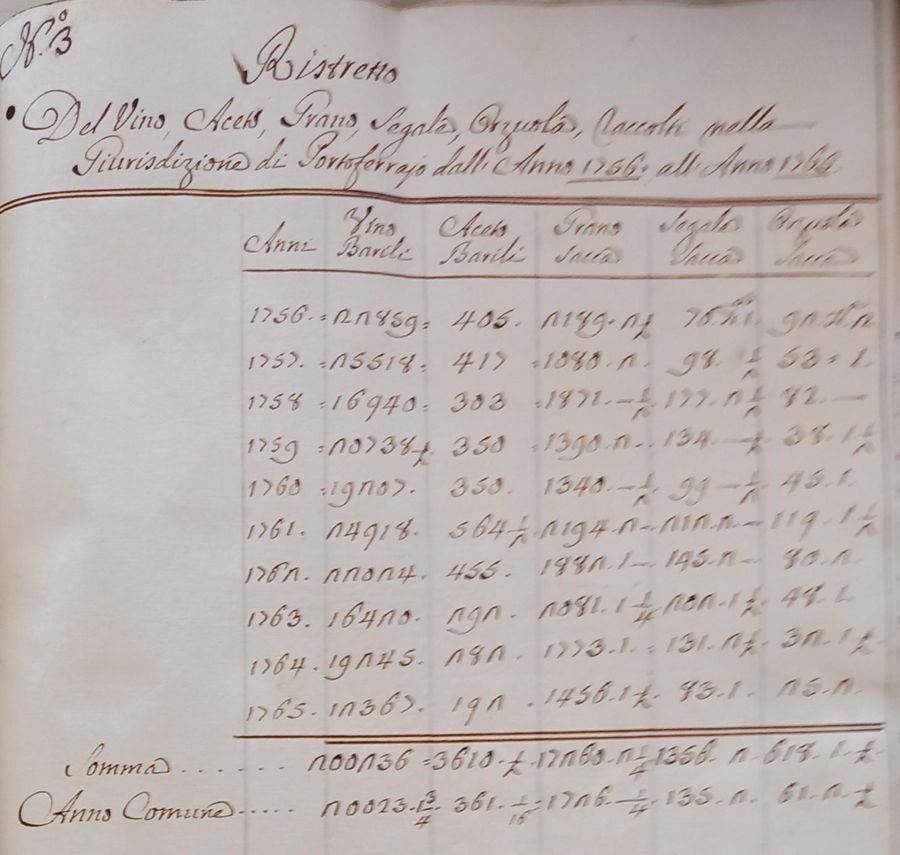 N.º 3
Ristretto
Del Vino, Aceto, Grano, Segale, Orzuola, Raccolti nella
Giurisdizione di Portoferrajo dall' Anno 1756. all' Anno 1766
Anni Vino Barili Aceto Barili Grano Sacca Segale Sacca Orzuola Sacca
1756. = 22859 = 405. 2189. 2 1/2 76. st 1. 92. st 2
1757. = 25518 = 417 = 1080. 2. 98. 1/2 53 = 1.
1758 = 16940 = 303 = 1871. — 1/2. 177. 2 1/2 82. —
1759 = 20738 1/2 350 = 1390. 2 - . 134. — 1/2 38. 1 1/2
1760 = 19207. 350. 1340. — 1/2. 99 — 1/2 45. 1.
1761. 24918. 564 1/2 2194. 2 - 212. 2 - 119. 1 1/2
1762. 22024. 455. 1882. 1 - 145. 2 - 80. 2.
1763. 16420. 292. 2081. 1 1/4 202. 1 1/2. 48. 1.
1764. 19245. 282. 1773. 1. = 131. 2 1/2 32. 1 1/2
1765. 12367. 192. 1456. 1 1/2 83. 1. 25. 2.
Somma . . . . . . 200236 = 3610. 1/2. 17260. 2 1/4 1356. 2. 618. 1. 1/2
Anno Comune . . . . . 20023. 3/4. 361. 1/16 = 1726. — 1/4. 135. 2. 61. 2. 1/2